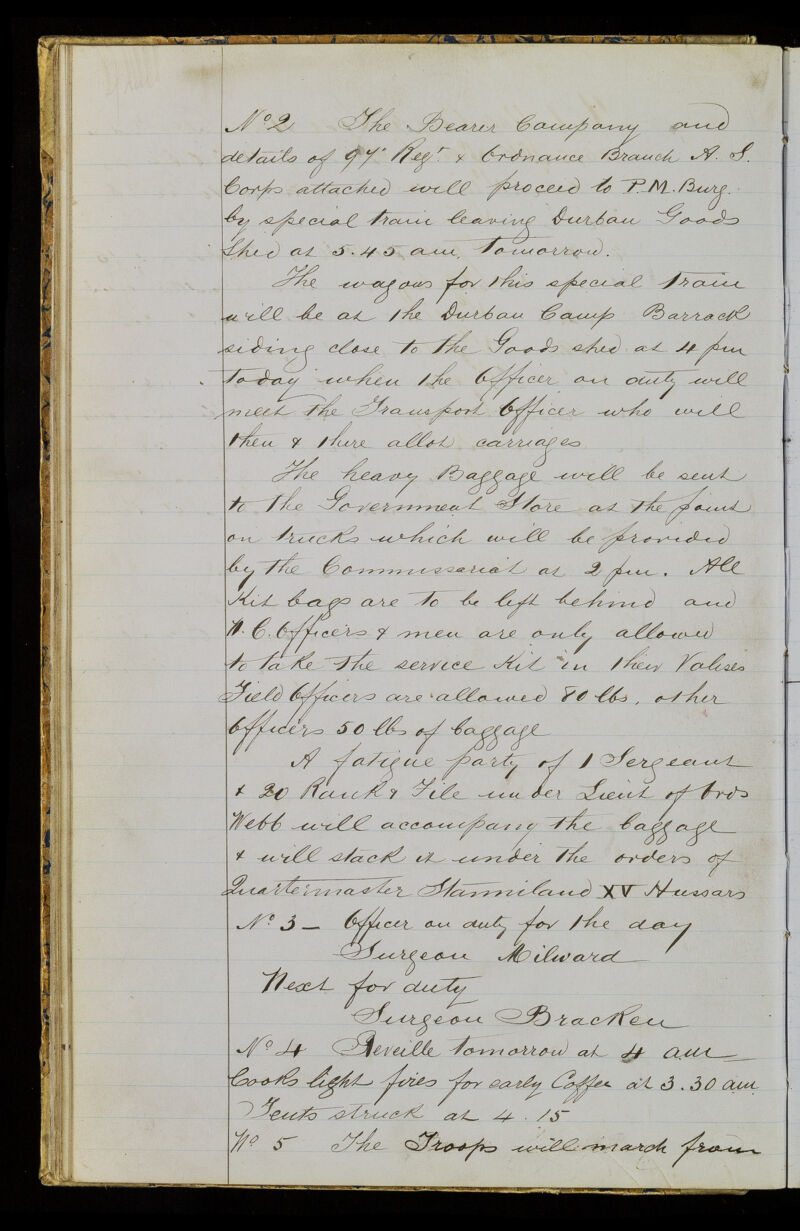 No 2 The Bearer Company and
details of 97th Regt & Ordnance Branch A. S.
Corps attached will proceed to P.M. Burg.
by special train leaving Durban Goods
Shed at 5.45 am, tomorrow.
The wagons for this special train
will be at the Durban Camp Barrack
siding close to the Goods shed at 4 pm
today when the Officer on duty will
meet the Transport Officer who will
then & there allot carriages
The heavy Baggage will be sent
to the Government Store at the point
on trucks which will be provided
by the Commissariat at 2 pm. All
Kit bags are to be left behind and
N. C. Officers & men are only allowed
to take the service Kit in their Valises
Field Officers are allowed 80 lbs, other
Officers 50 lbs of baggage
A fatigue party of 1 Sergeant
& 20 Rank & File under Lieut of Ords
Webb will accompany the baggage
& will stack it under the orders of
Quartermaster Stanniland XV Hussars
No 3 – Officer on duty for the day
Surgeon Milward
Next for duty
Surgeon Bracken
No 4 Reveille tomorrow at 4 am
Cooks light fires for early Coffee at 3.30 am
Tents struck at 4.15
No 5 The Troops will march from